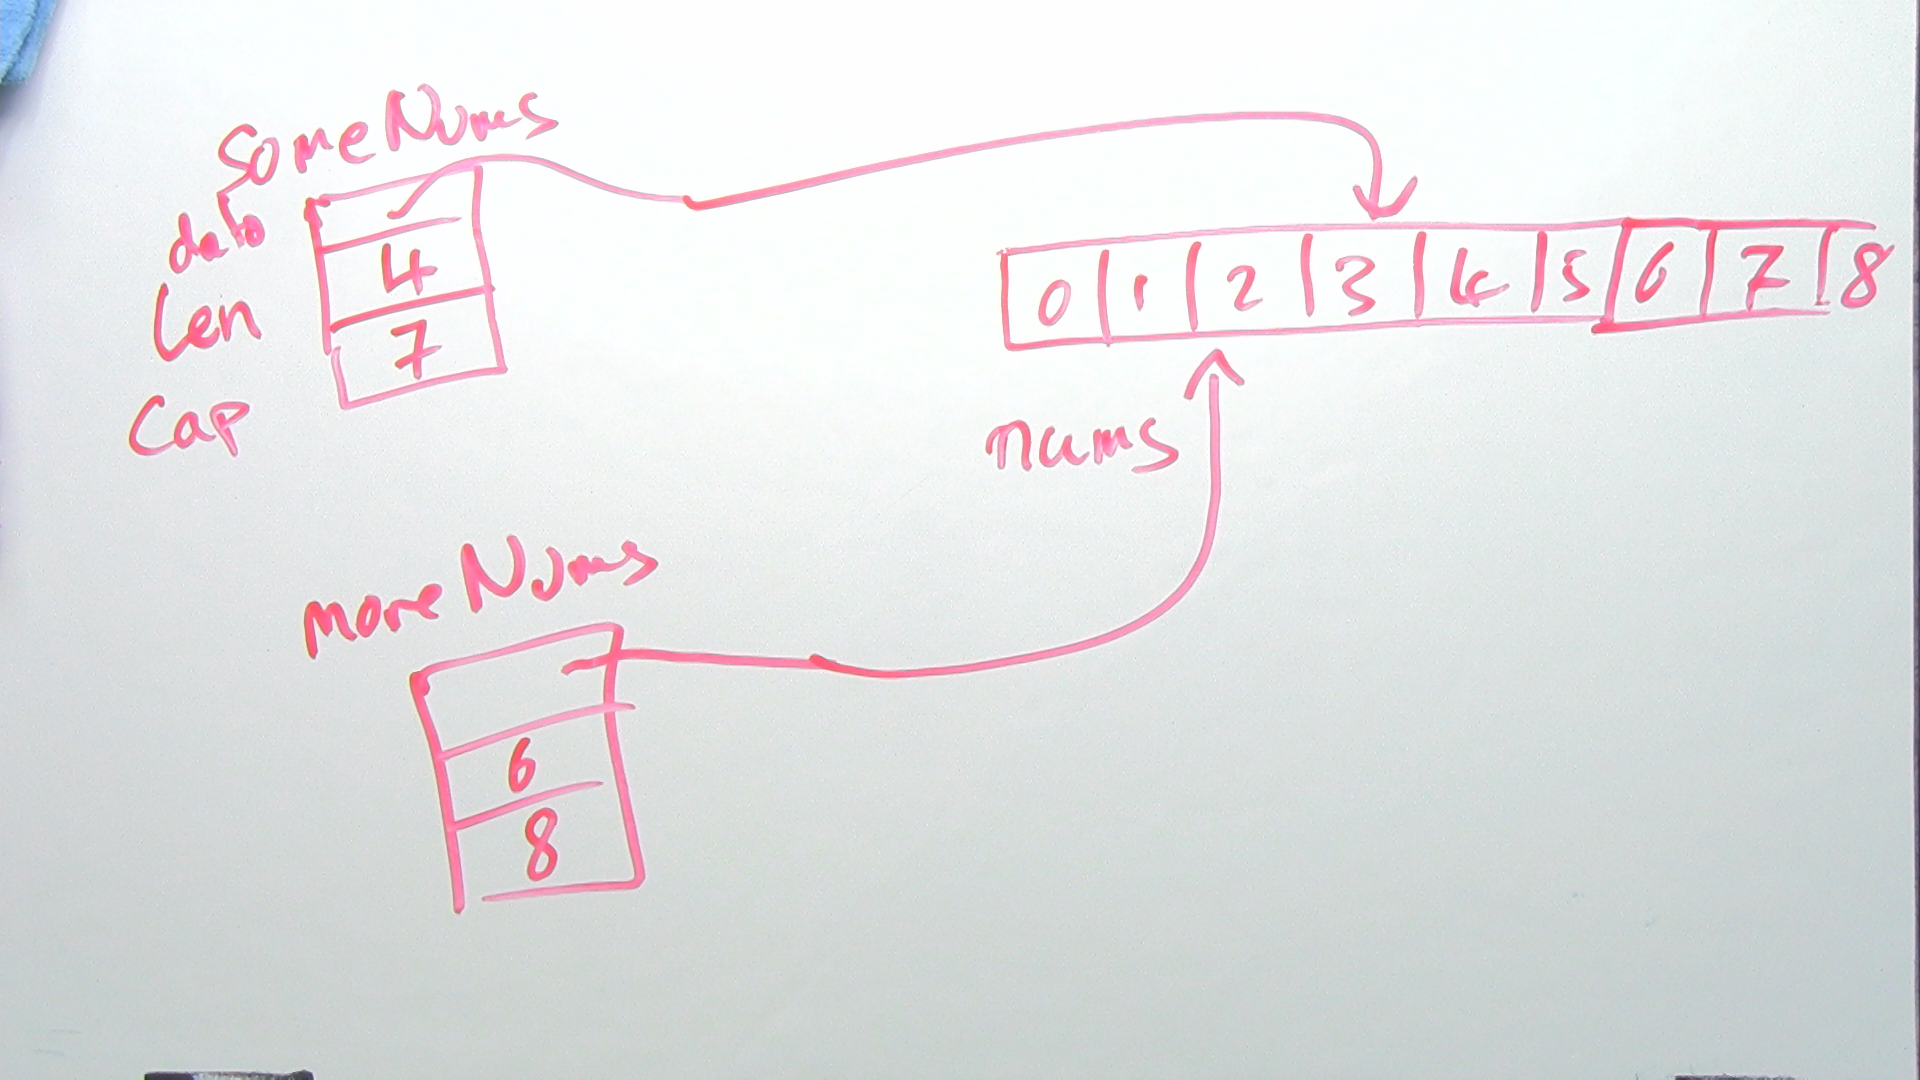 someNums
data
len 4
cap 7
0 1 2 3 4 5 6 7 8
nums
moreNums
6
8